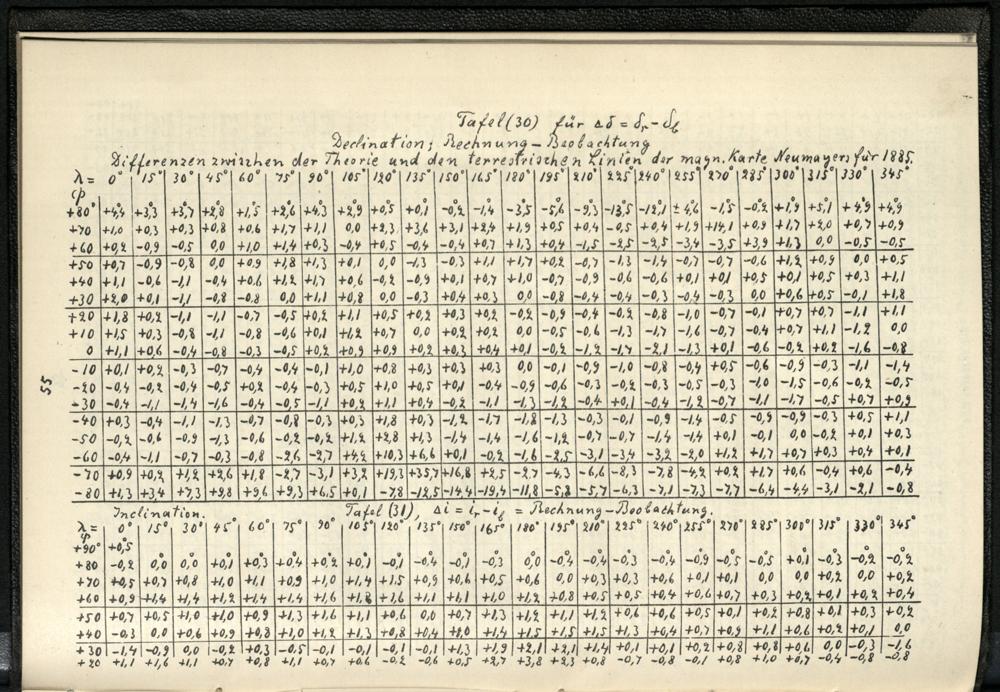 Tafel (30) für Δδ = δr - δb
Declination; Rechnung - Beobachtung
Differenzen zwischen der Theorie und den terrestrischen Linien der magn. Karte Neumayers für 1885.
λ = 0° 15° 30° 45° 60° 75° 90° 105° 120° 135° 150° 165° 180° 195° 210° 225° 240° 255° 270° 285° 300° 315° 330° 345°
φ
+80° +4,4 +3,3 +3,7 +2,8 +1,5 +2,6 +4,3 +2,9 +0,5 +0,1 -0,2 -1,4 -3,5 -5,6 -9,3 -13,5 -12,1 ±4,6 -1,5 -0,2 +1,9 +5,1 +4,9 +4,9
+70 +1,0 +0,3 +0,3 +0,8 +0,6 +1,7 +1,1 0,0 +2,3 +3,6 +3,1 +2,4 +1,9 +0,5 +0,4 -0,5 +0,4 +1,9 +14,1 +0,9 +1,7 +2,0 +0,7 +0,9
+60 +0,2 -0,9 -0,5 0,0 +1,0 +1,4 +0,3 -0,4 +0,5 -0,4 -0,4 +0,7 +1,3 +0,4 -1,5 -2,5 -2,5 -3,4 -3,5 +3,9 +1,3 0,0 -0,5 -0,5
+50 +0,7 -0,9 -0,8 0,0 +0,9 +1,8 +1,3 +0,1 0,0 -1,3 -0,3 +1,1 +1,7 +0,2 -0,7 -1,3 -1,4 -0,7 -0,7 -0,6 +1,2 +0,9 0,0 +0,5
+40 +1,1 -0,6 -1,1 -0,4 +0,6 +1,2 +1,7 +0,6 -0,2 -0,9 +0,1 +0,7 +1,0 -0,7 -0,9 -0,6 -0,6 +0,1 +0,1 +0,5 +0,1 +0,5 +0,3 +1,1
+30 +2,0 +0,1 -1,1 -0,8 -0,8 0,0 +1,1 +0,8 0,0 -0,3 +0,4 +0,3 0,0 -0,8 -0,4 -0,4 -0,3 -0,4 -0,3 0,0 +0,6 +0,5 -0,1 +1,8
+20 +1,8 +0,2 -1,1 -1,1 -0,7 -0,5 +0,2 +1,1 +0,5 +0,2 +0,3 +0,2 -0,2 -0,9 -0,4 -0,2 -0,8 -1,0 -0,7 -0,1 +0,7 +0,7 -1,1 +1,1
+10 +1,5 +0,3 -0,8 -1,1 -0,8 -0,6 +0,1 +1,2 +0,7 0,0 +0,2 +0,2 0,0 -0,5 -0,6 -1,3 -1,7 -1,6 -0,7 -0,4 +0,7 +1,1 -1,2 0,0
0 +1,1 +0,6 -0,4 -0,8 -0,3 -0,5 +0,2 +0,9 +0,9 +0,2 +0,3 +0,4 +0,1 -0,2 -1,2 -1,7 -2,1 -1,3 +0,1 -0,6 -0,2 +0,2 -1,6 -0,8
-10 +0,1 +0,2 -0,3 -0,7 -0,4 -0,4 -0,1 +1,0 +0,8 +0,3 +0,3 +0,3 0,0 -0,1 -0,9 -1,0 -0,8 -0,4 +0,5 -0,6 -0,9 -0,3 -1,1 -1,4
-20 -0,4 -0,2 -0,4 -0,5 +0,2 -0,4 -0,3 +0,5 +1,0 +0,5 +0,1 -0,4 -0,9 -0,6 -0,3 -0,2 -0,3 -0,5 -0,3 -1,0 -1,5 -0,6 -0,2 -0,5
-30 -0,4 -1,1 -1,4 -1,6 -0,4 -0,5 -1,1 +0,2 +1,1 +0,4 -0,2 -1,1 -1,3 -1,2 -0,4 +0,1 -0,4 -1,2 -0,7 -1,1 -1,7 -0,5 +0,7 +0,9
-40 +0,3 -0,4 -1,1 -1,3 -0,7 -0,8 -0,3 +0,3 +1,8 +0,3 -1,2 -1,7 -1,8 -1,3 -0,3 -0,1 -0,9 -1,4 -0,5 -0,9 -0,9 -0,3 +0,5 +1,1
-50 -0,2 -0,6 -0,9 -1,3 -0,6 -0,2 -0,2 +1,2 +2,8 +1,3 -1,4 -1,4 -1,6 -1,2 -0,7 -0,7 -1,4 -1,4 +0,1 -0,1 0,0 -0,2 +0,1 +0,3
-60 -0,4 -1,1 -0,7 -0,3 -0,8 -2,6 -2,7 +4,2 +10,3 +6,6 +0,1 -0,2 -1,6 -2,5 -3,1 -3,4 -3,2 -2,0 +1,2 +1,7 +0,7 +0,3 +0,4 +0,1
-70 +0,9 +0,2 +1,2 +2,6 +1,8 -2,7 -3,1 +3,2 +19,3 +35,7 +16,8 +2,5 -2,7 -4,3 -6,6 -8,3 -7,8 -4,2 +0,2 +1,7 +0,6 -0,4 +0,6 -0,4
-80 +1,3 +3,4 +7,3 +9,8 +9,6 +9,3 +6,5 +0,1 -7,8 -12,5 -14,4 -19,4 -11,8 -5,8 -5,7 -6,3 -7,1 -7,3 -7,3 -6,4 -4,4 -3,1 -2,1 -0,8
55
Inclination. Tafel (31), Δi = ir - ib = Rechnung - Beobachtung.
λ = 0° 15° 30° 45° 60° 75° 90° 105° 120° 135° 150° 165° 180° 195° 210° 225° 240° 255° 270° 285° 300° 315° 330° 345°
φ
+90° +0,5
+80 -0,2 0,0 0,0 +0,1 +0,3 +0,4 +0,2 +0,1 -0,1 -0,4 -0,1 -0,3 0,0 0,0 -0,4 -0,3 -0,4 -0,9 -0,5 -0,5 +0,1 -0,3 -0,2 -0,2
+70 +0,5 +0,7 +0,8 +1,0 +1,1 +0,9 +1,0 +1,4 +1,5 +0,9 +0,6 +0,5 +0,6 0,0 +0,3 +0,3 +0,6 +0,1 +0,1 0,0 0,0 +0,2 0,0 +0,2
+60 +0,9 +1,4 +1,4 +1,2 +1,4 +1,4 +1,6 +1,8 +1,6 +1,1 +1,1 +1,0 +1,2 +0,8 +0,5 +0,5 +0,4 +0,6 +0,7 +0,3 +0,2 +0,1 +0,2 +0,4
+50 +0,7 +0,5 +1,0 +1,0 +0,9 +1,3 +1,6 +1,1 +0,6 0,0 +0,7 +1,3 +1,2 +1,1 +1,2 +0,6 +0,6 +0,5 +0,1 +0,2 +0,8 +0,1 +0,3 +0,2
+40 -0,3 0,0 +0,6 +0,9 +0,8 +1,0 +1,2 +1,3 +0,8 +0,4 +2,0 +1,4 +1,5 +1,5 +1,5 +1,3 +0,4 +0,7 +0,9 +1,1 +0,6 +0,2 +0,1 0,0
+30 -1,4 -0,9 0,0 -0,2 +0,3 -0,5 -0,1 -0,1 -0,1 -0,1 +0,3 +1,9 +2,1 +2,1 +1,4 +0,1 +0,1 +0,2 +0,8 +0,8 +0,6 0,0 -0,3 -1,6
+20 +1,1 +1,6 +1,1 +0,7 +0,8 +1,1 +0,7 +0,6 -0,2 -0,6 +0,5 +2,7 +3,8 +2,3 +0,8 -0,7 -0,8 -0,1 +0,8 +1,0 +0,7 -0,4 -0,8 -0,8